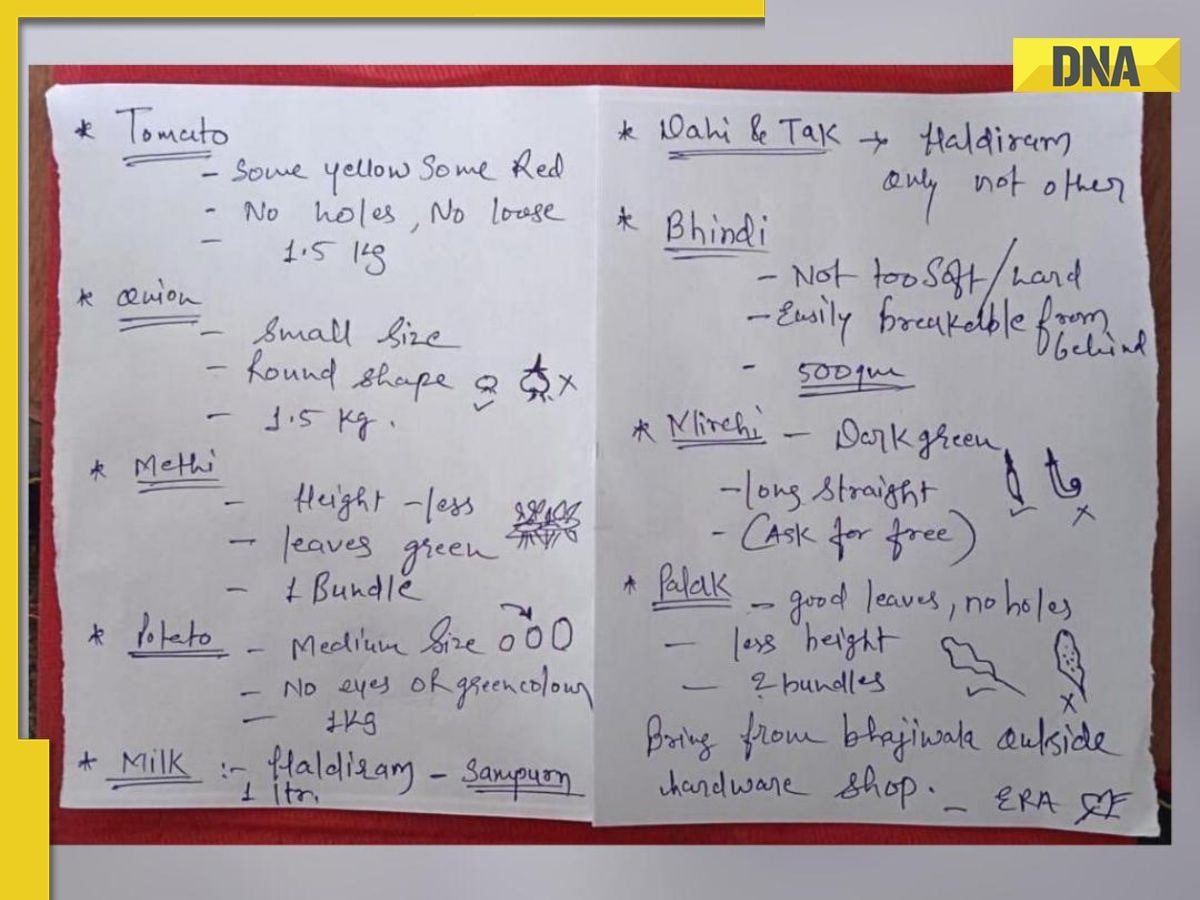 DNA
* Tomato
- Some yellow Some Red
- No holes, No loose
- 1.5 kg
* Onion
- Small Size
- Round shape
- 1.5 kg.
* Methi
- Height - less
- leaves green
- 1 Bundle
* Potato - Medium Size
- No eyes or green colour
- 1kg
* Milk :- Haldiram - Sampurn
1 ltr.
* Dahi & Tak → Haldiram
only not other
* Bhindi
- Not too Soft/hard
- Easily breakable from
behind
- 500gm
* Mirchi - Dark green
- long straight
- (Ask for free)
* Palak - good leaves, no holes
- less height
- 2 bundles
Bring from bhajiwala outside
hardware shop. - ERA